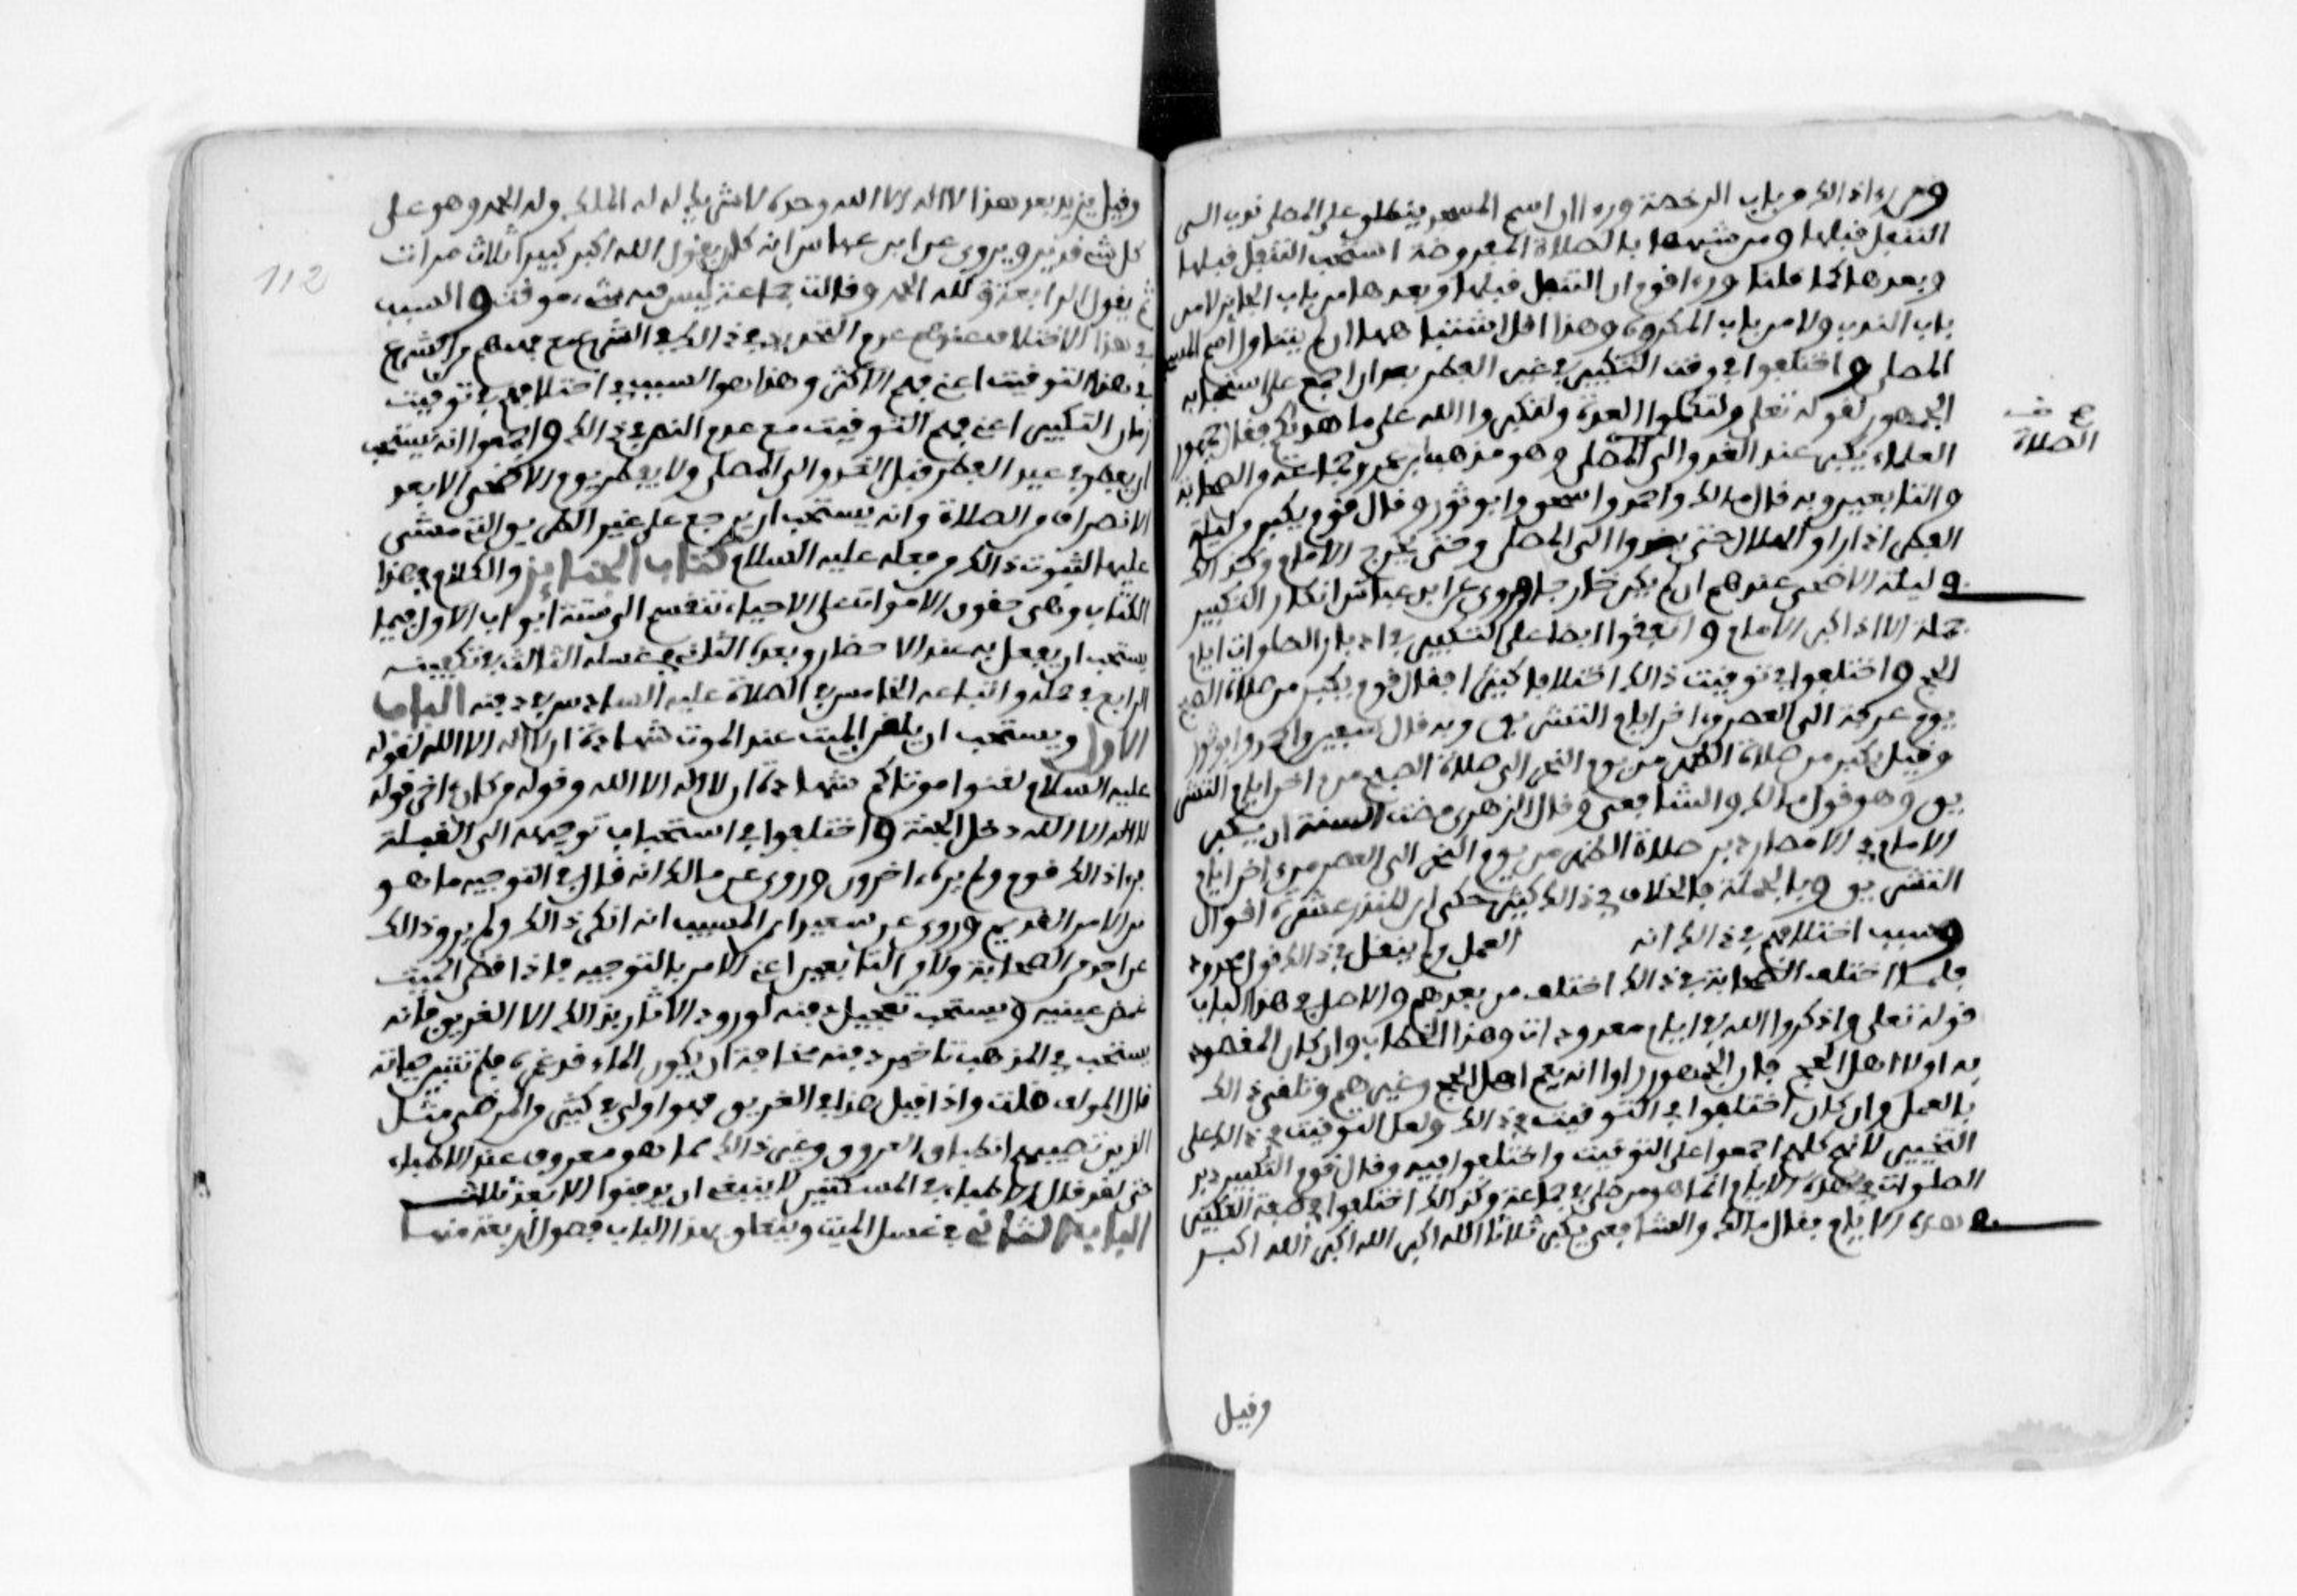 ومن راى ذالك من باب الرخصة وراى ان اسم المسجد ينطلق على المصلى ندب الى
التنفل قبلها ومن شبهها بالصلاة المفروضة استحب التنفل قبلها
وبعدها كما قلنا وراى قوم ان التنفل قبلها وبعدها من باب الجايز لا من
باب الندب ولا من باب المكروه وهذا اقل اشتباها ان لم يتناول اسم المسجد
المصلى واختلفوا في وقت التكبير في عيد الفطر بعد ان اجمع على استحبابه
الجمهور لقوله تعلى ولتكملوا العدة ولتكبروا الله على ما هديكم فقال جمهور
العلماء يكبر عند الغدو الى المصلى وهو مذهب ابن عمر وجماعة من الصحابة
والتابعين وبه قال مالك واحمد واسحق وابو ثور وقال قوم يكبر من ليلة
الفطر اذا راوا الهلال حتى يغدوا الى المصلى وحتى يخرج الامام وكذالك
في ليلة الاضحى عندهم ان لم يكن حاجا وروي عن ابن عباس انكار التكبير
جملة الا اذا كبر الامام واتفقوا ايضا على التكبير في ادبار الصلوات ايام
الحج واختلفوا في توقيت ذالك اختلافا كثيرا فقال قوم يكبر من صلاة الصبح
يوم عرفة الى العصر من اخر ايام التشريق وبه قال سفيان واحمد وابو ثور
وقيل يكبر من صلاة الظهر من يوم النحر الى صلاة الصبح من اخر ايام التشر
يق وهو قول مالك والشافعي وقال الزهري مضت السنة ان يكبر
الامام في الامصار دبر صلاة الظهر من يوم النحر الى العصر من اخر ايام
التشريق وبالجملة فالخلاف في ذالك كثير حكى ابن المنذر عشرة اقوال
وسبب اختلافهم في ذالك انه العمل ولم ينقل في ذالك قول محدود
فلما اختلف الصحابة في ذالك اختلف من بعدهم والاصل في هذا الباب
قوله تعلى واذكروا الله في ايام معدودات وهذا الخطاب وان كان المقصود
به اولا اهل الحج فان الجمهور راوا انه يعم اهل الحج وغيرهم وتلقي ذالك
بالعمل وان كان اختلفوا في التوقيت في ذالك ولعل التوقيت في ذالك على
التخيير لانهم كلهم اجمعوا على التوقيت واختلفوا فيه وقال قوم التكبير دبر
الصلوات في هذه الايام انما هو لمن صلى في جماعة وكذالك اختلفوا في صفة التكبير
في هذه الايام فقال مالك والشافعي يكبر ثلاثا الله اكبر الله اكبر الله اكبر
وقيل
الصلاة
وقيل يزيد بعد هذا لا اله الا الله وحده لا شريك له له الملك وله الحمد وهو على
كل شيء قدير ويروى عن ابن عباس انه كان يقول الله اكبر كبيرا ثلاث مرات
ثم يقول الرابعة ولله الحمد وقالت جماعة ليس فيه شيء موقت والسبب
في هذا الاختلاف عندهم عدم التحديد في ذالك في الشرع مع فهمهم من الشرع
في هذا التوقيت اعني فهم الاكثر وهذا هو السبب في اختلافهم في توقيت
زمان التكبير اعني فهم التوقيت مع عدم النص في ذالك واجمعوا انه يستحب
ان يفطر في عيد الفطر قبل الغدو الى المصلى ولا يفطر يوم الاضحى الا بعد
الانصراف من الصلاة وانه يستحب ان يرجع على غير الطريق التي مشى
عليها لثبوت ذالك من فعله عليه السلام كتاب الجنايز والكلام في هذا
الكتاب وهي حقوق الاموات على الاحياء تنقسم الى ستة ابواب الاول فيما
يستحب ان يفعل به عند الاحتضار وبعده الثاني في غسله الثالث في تكفينه
الرابع في حمله واتباعه الخامس في الصلاة عليه السادس في دفنه الباب
الاول ويستحب ان يلقن الميت عند الموت شهادة ان لا اله الا الله لقوله
عليه السلام لقنوا موتاكم شهادة ان لا اله الا الله وقوله من كان اخر قوله
لا اله الا الله دخل الجنة واختلفوا في استحباب توجيهه الى القبلة
فراى ذالك قوم ولم يره اخرون وروي عن مالك انه قال في التوجيه ما هو
من الامر القديم وروي عن سعيد ابن المسيب انه انكر ذالك ولم يرو ذالك
عن احد من الصحابة ولا من التابعين اعني الامر بالتوجيه فاذا قضى الميت
غمض عينيه ويستحب تعجيل دفنه لورود الاثار بذالك الا الغريق فانه
يستحب في المذهب تاخير دفنه مخافة ان يكون الماء قد غمره فلم تتبين حياته
قال المولف قلت واذا قيل هذا في الغريق فهو اولى في كثير من المرضى مثل
الذين تصيبهم انطباق العروق وغير ذالك مما هو معروف عند الاطباء
حتى لقد قال الاطباء في المسكتين لا ينبغي ان يدفنوا الا بعد ثلاث
الباب الثاني في غسل الميت ويتعلق بهذا الباب فصول اربعة منها
112